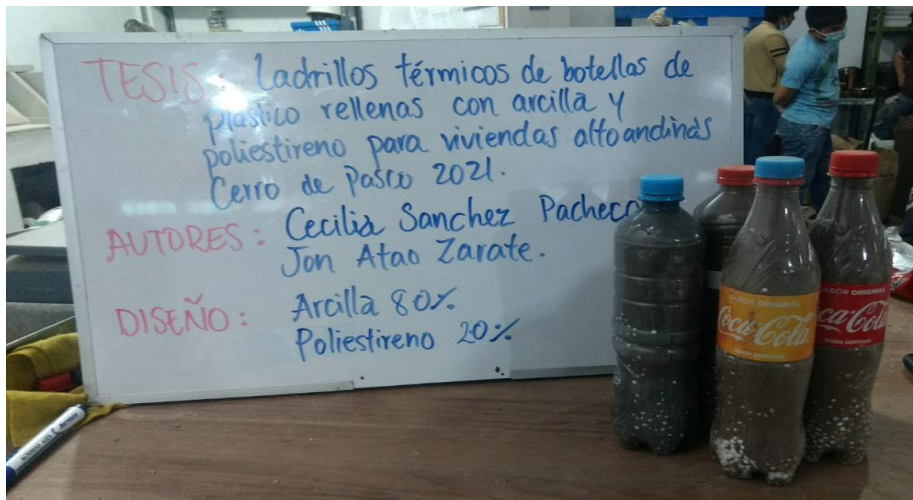 TESIS: Ladrillos térmicos de botellas de
plástico rellenas con arcilla y
poliestireno para viviendas altoandinas
Cerro de Pasco 2021.
AUTORES: Cecilia Sanchez Pacheco
Jon Atao Zarate.
DISEÑO: Arcilla 80%
Poliestireno 20%
SABOR ORIGINAL
Coca-Cola
SABOR ORIGINAL
Coca-Cola